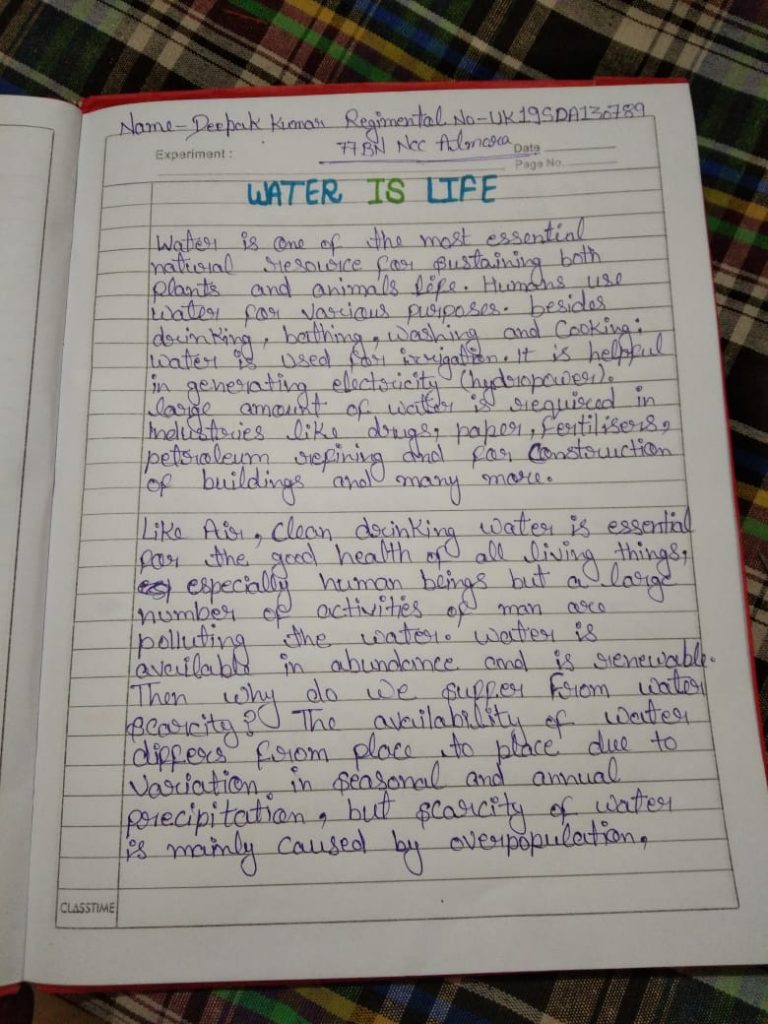 Name-Deepak Kumar Regimental No-UK19SDA130789
77BN Ncc Almora
Experiment :
Date
Page No.
WATER IS LIFE
Water is one of the most essential
natural resource for sustaining both
plants and animals life. Humans use
water for various purposes. besides
drinking, bathing, washing and Cooking;
water is used for irrigation. It is helpful
in generating electricity (hydropower).
large amount of water is required in
Industries like drugs, paper, fertilisers,
petroleum refining and for Construction
of buildings and many more.
Like Air, clean drinking water is essential
for the good health of all living things,
especially human beings but a large
number of activities of man are
polluting the water. water is
available in abundance and is renewable.
Then why do we suffer from water
scarcity? The availability of water
differs from place to place due to
variation in seasonal and annual
precipitation, but scarcity of water
is mainly caused by overpopulation,
CLASSTIME